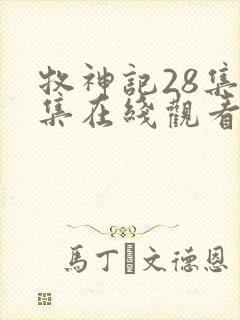 牧神記28集
集在綫觀看
馬丁·文德恩